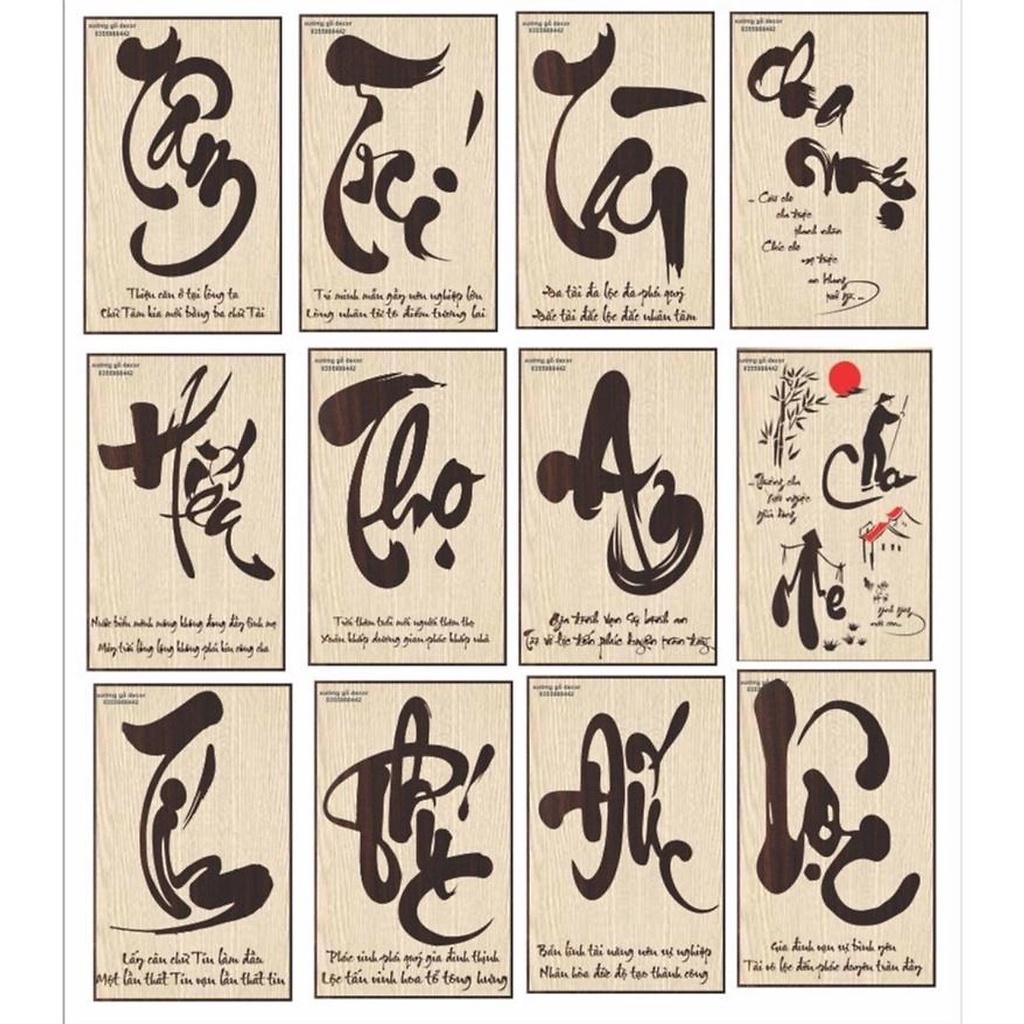 xưởng gỗ decor
0355888442
Tâm
Thiện căn ở tại lòng ta
Chữ Tâm kia mới bằng ba chữ Tài
xưởng gỗ decor
0355888442
Trí
Trí minh mẫn gây nên nghiệp lớn
Lòng nhân từ tô điểm tương lai
xưởng gỗ decor
0355888442
Tài
Đa tài đa lộc đa phú quý
Đắc tài đắc lộc đắc nhân tâm
xưởng gỗ decor
0355888442
Cha
Mẹ
Cầu cho
cha được
thanh nhàn
Chúc cho
mẹ được
an khang
xưởng gỗ decor
0355888442
Hiếu
Nước biển mênh mông không đong đầy tình mẹ
Mây trời lồng lộng không phủ kín công cha
xưởng gỗ decor
0355888442
Thọ
Trời thêm tuổi mới người thêm thọ
Xuân khắp dương gian phúc khắp nhà
xưởng gỗ decor
0355888442
An
Gia đình vạn sự bình an
Tài vô lộc tiến phúc duyên
xưởng gỗ decor
0355888442
Cha
Mẹ
xưởng gỗ decor
0355888442
Tín
Lấy câu chữ Tín làm đầu
Một lần thất Tín vạn lần thất tin
xưởng gỗ decor
0355888442
Phúc
Phúc sinh phú quý gia đình thịnh
Lộc tấn vinh hoa tổ tông hưng
xưởng gỗ decor
0355888442
Đức
Bản lĩnh tài năng nên sự nghiệp
Nhân hòa đức độ tạo thành công
xưởng gỗ decor
0355888442
Lộc
Gia đình vạn sự bình yên
Tài vô lộc đến phúc duyên tràn đầy